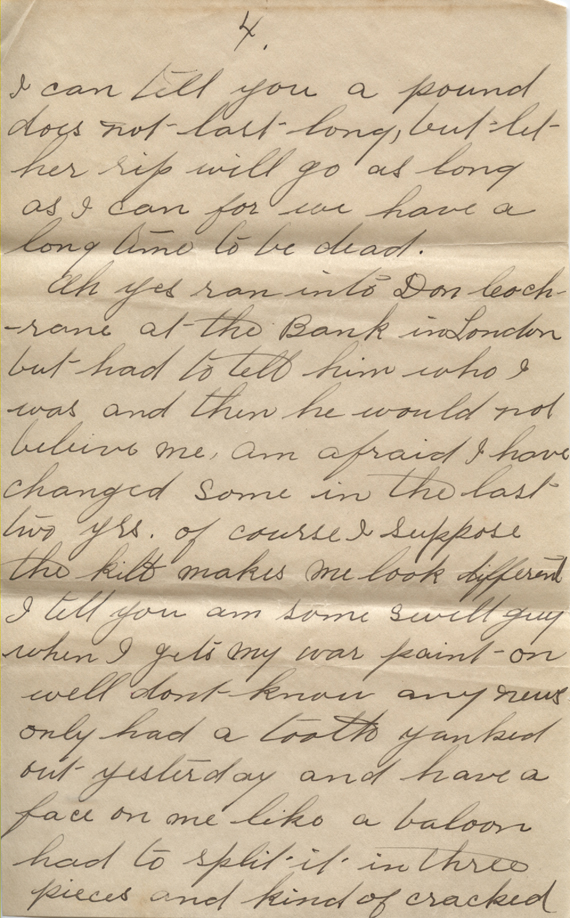 4.
I can till you a pound
does not last long, but let
her rip will go as long
as I can for we have a
long time to be dead.
Ah yes ran into Don Coch-
-rane at the Bank in London
but had to tell him who I
was and then he would not
beleive me, am afraid I have
changed some in the last
two yrs. of course I suppose
the kilt makes me look different
I tell you am some swell guy
when I gets my war paint on
well dont know any news
only had a tooth yanked
out yesterday and have a
face on me like a baloon
had to split it in three
pieces and kind of cracked